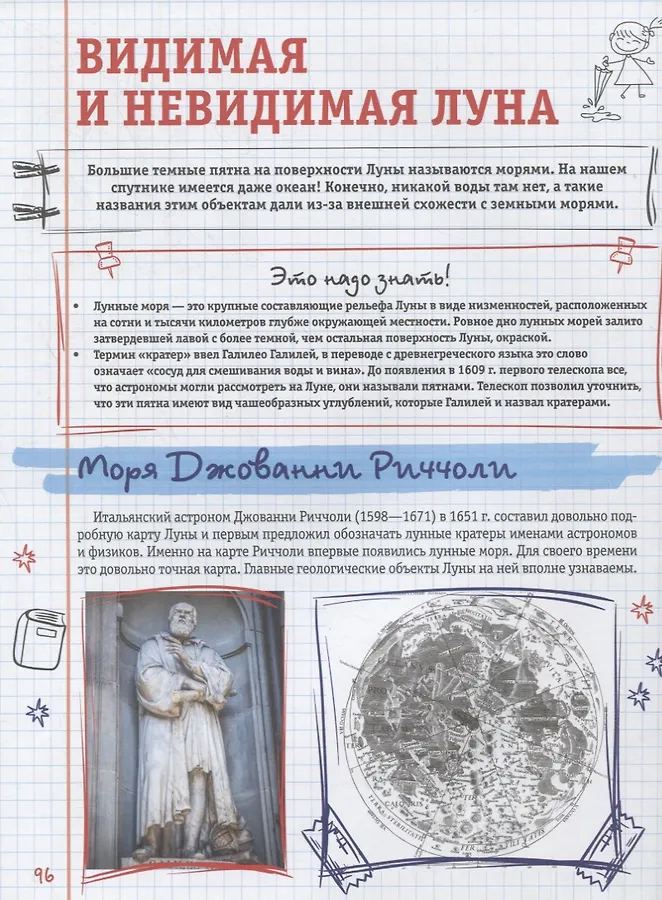 ВИДИМАЯ
И НЕВИДИМАЯ ЛУНА
Большие темные пятна на поверхности Луны называются морями. На нашем
спутнике имеется даже океан! Конечно, никакой воды там нет, а такие
названия этим объектам дали из-за внешней схожести с земными морями.
Это надо знать!
• Лунные моря — это крупные составляющие рельефа Луны в виде низменностей, расположенных
на сотни и тысячи километров глубже окружающей местности. Ровное дно лунных морей залито
затвердевшей лавой с более темной, чем остальная поверхность Луны, окраской.
• Термин «кратер» ввел Галилео Галилей, в переводе с древнегреческого языка это слово
означает «сосуд для смешивания воды и вина». До появления в 1609 г. первого телескопа все,
что астрономы могли рассмотреть на Луне, они называли пятнами. Телескоп позволил уточнить,
что эти пятна имеют вид чашеобразных углублений, которые Галилей и назвал кратерами.
Моря Джованни Риччоли
Итальянский астроном Джованни Риччоли (1598—1671) в 1651 г. составил довольно под-
робную карту Луны и первым предложил обозначать лунные кратеры именами астрономов
и физиков. Именно на карте Риччоли впервые появились лунные моря. Для своего времени
это довольно точная карта. Главные геологические объекты Луны на ней вполне узнаваемы.
96